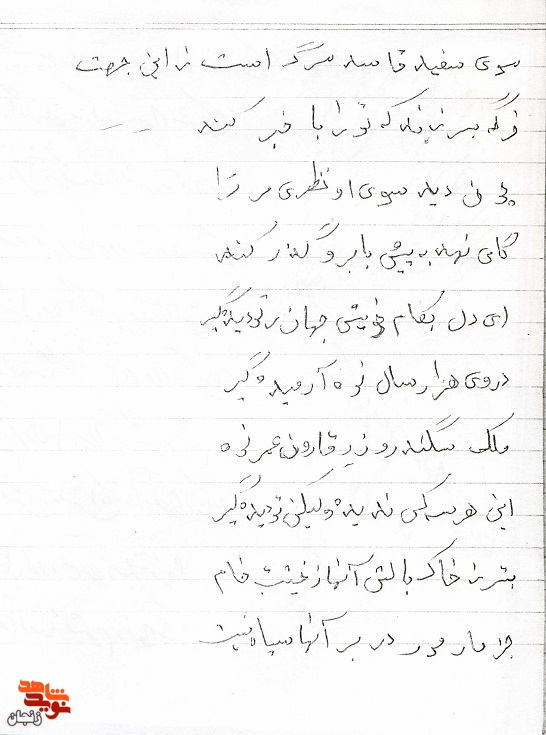 سوی سفید قاصد مرگ است زاین جهت
فرگه بر زند که تو را با خبر کند
چون دید سوی او نظری مر ترا
گای نهد به پیش بابر و گذر کند
ای دل بکام خویش جهان را تو دیده گیر
در وی هزار سال نوح آرمیده گیر
ملک سکندر و زر قارون عمر نوح
این هر سه کس ندیده ولیکن تو دیده گیر
بستر ز خاک بالش آنها ز خشت خام
جز مار مور در بر آنها سپاه نیست
نوید شاهد
زنجان